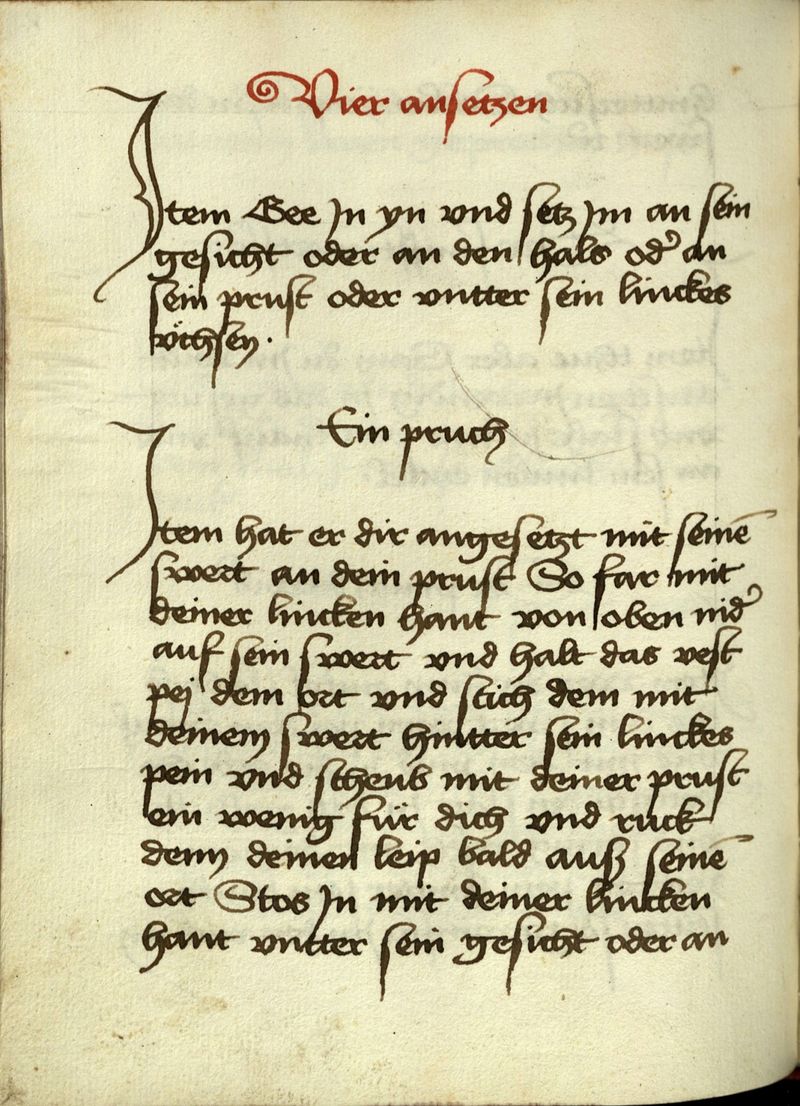 Vier ansetzen
Item Gee In yn vnd setz im an sein
gesicht oder an den hals od᾽ an
sein prust oder vntter sein linckes
vͦchsen.
Ein pruch
Item hat er dir angesetzt mit seinē
swert an dein prust So far mit
deiner lincken hant von oben nid᾽
auf sein swert vnd halt das vest
pej dem ort vnd stich dem mit
deinem swert hintter sein linckes
pein vnd scheub mit deiner prust
ein wenig für dich vnd ruck
denn deinen leip bald auß seinē
ort Stos In mit deiner lincken
hant vntter sein gesicht oder an